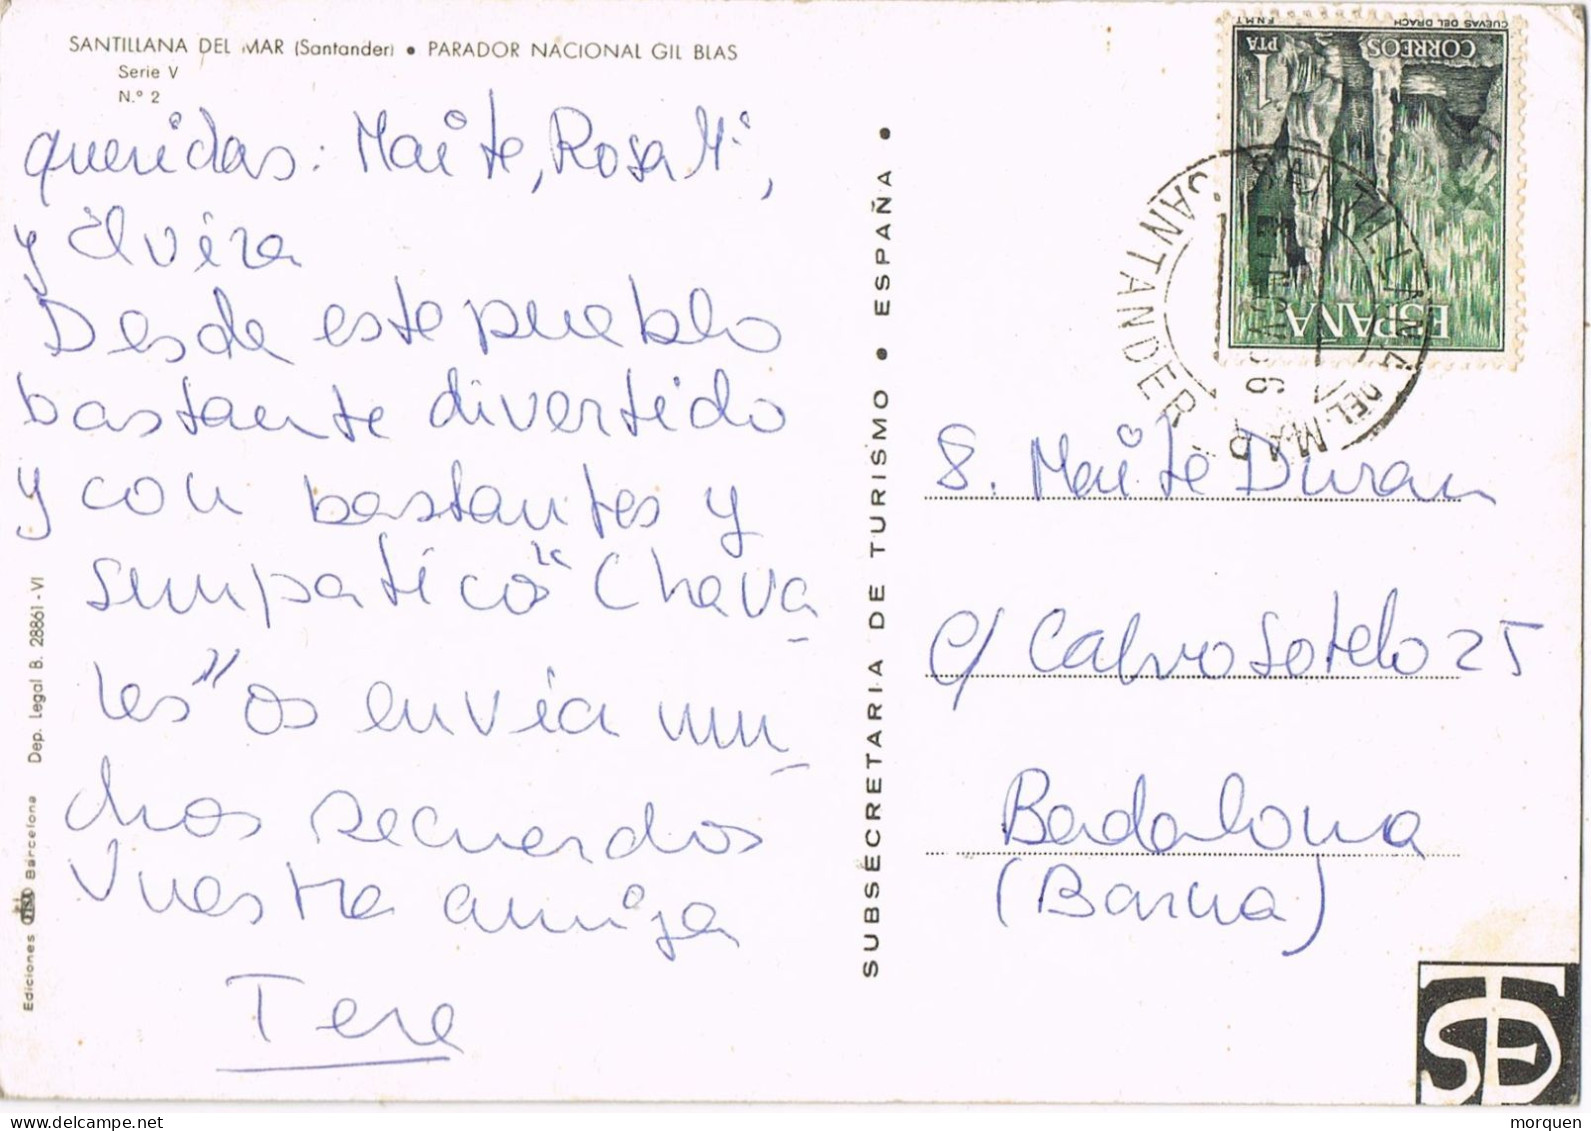 SANTILLANA DEL MAR (Santander) • PARADOR NACIONAL GIL BLAS
Serie V
N.º 2
queridas: Maite, Rosa Mª,
y Elvira
Desde este pueblo
bastante divertido
y con bastantes y
simpaticos "Chava
les" os envia mu
chos recuerdos
Vuestra amiga
Tere
Ediciones Barcelona Dep. Legal B. 28861-VI
SUBSECRETARIA DE TURISMO • ESPAÑA •
CUEVAS DEL DRACH F.N.M.T
CORREOS 1 PTA
ESPAÑA
SANTILLANA DEL MAR
SANTANDER
S. Maite Duran
c/ Calvo Sotelo 25
Badalona
(Barna)
morquen